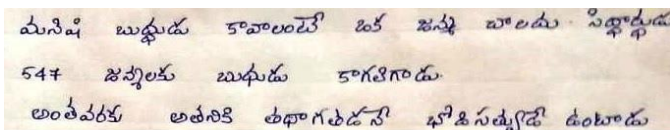 మనిషి బుద్ధుడు కావాలంటే ఒక జన్మ చాలదు. సిద్ధార్థుడు
547 జన్మలకు బుధుడు కాగలిగాడు.
అంతవరకు అతనికి తథాగతడనే భోధిసత్వుడే ఉంటాడు